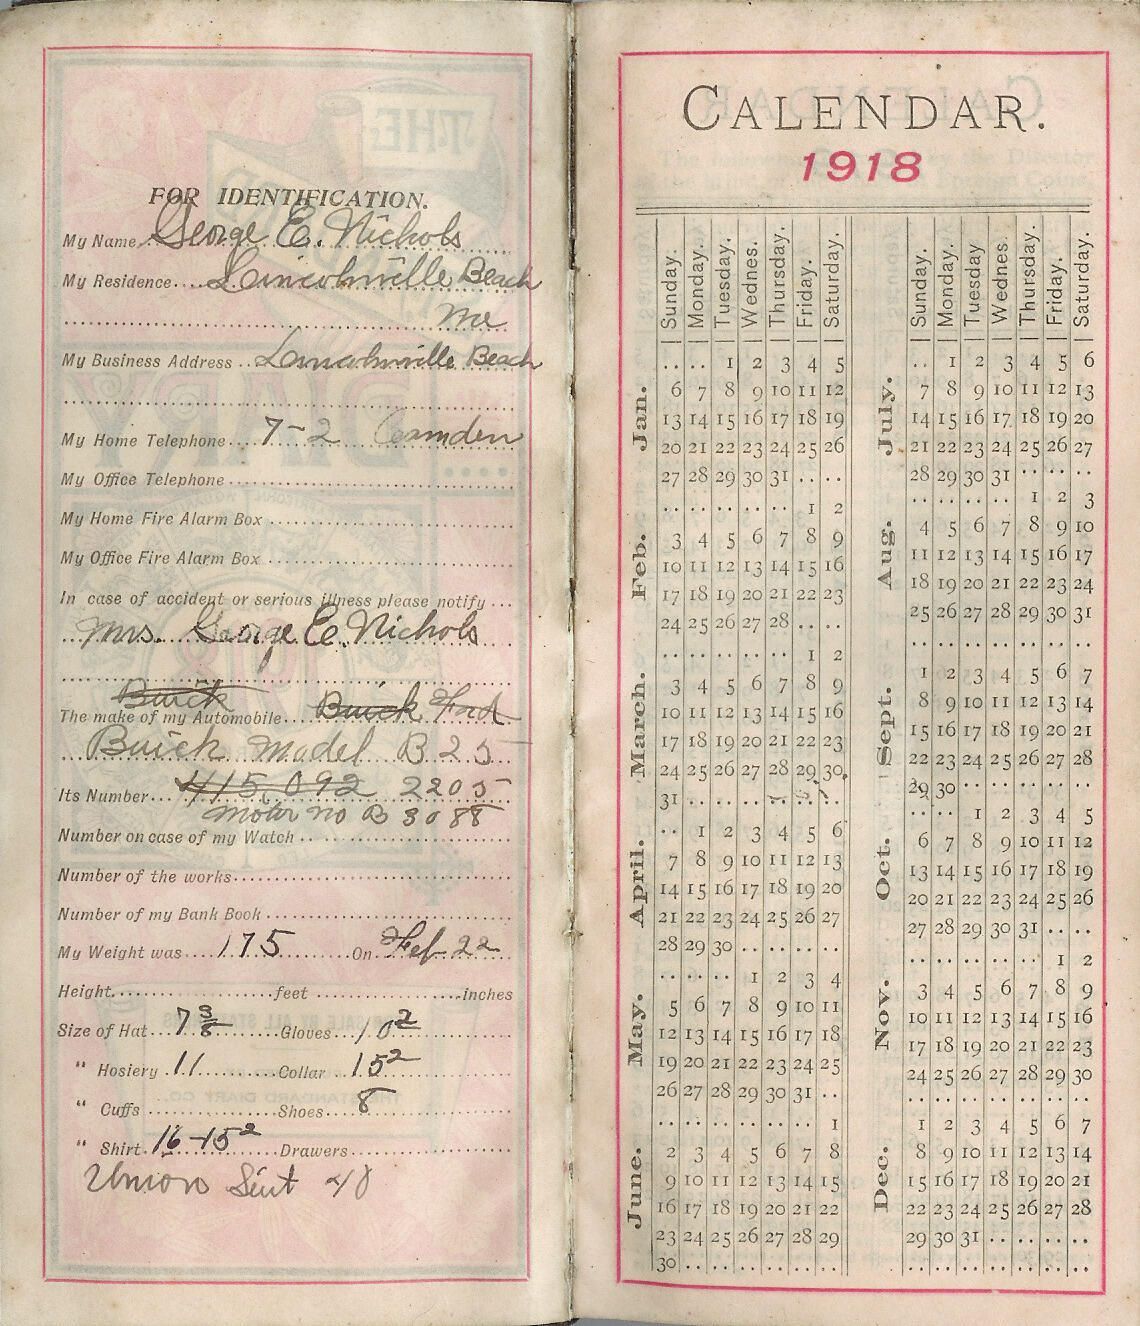 FOR IDENTIFICATION.
My Name George E. Nichols
My Residence.... Lincolnville Beach
Me
My Business Address .. Lincolnville Beach
My Home Telephone.... 7-2 Camden
My Office Telephone
My Home Fire Alarm Box
My Office Fire Alarm Box
In case of accident or serious illness please notify ...
Mrs. George E. Nichols
Buick
The make of my Automobile.... Buick Ford
Buick Model B 25
Its Number... 415,092 2205
Motor no B 3088
Number on case of my Watch
Number of the works
Number of my Bank Book
My Weight was ... 175 ... On Feb 22
Height ... feet ... inches
Size of Hat.. 7 3/8 ... Gloves.. 10 2
" Hosiery . 11 ... Collar .. 15 2
" Cuffs ... Shoes... 8
" Shirt. 16-15 2 ... Drawers
Union Suit 40
CALENDAR.
1918
Sunday. Monday. Tuesday. Wednes. Thursday. Friday. Saturday.
Jan.
1 2 3 4 5
6 7 8 9 10 11 12
13 14 15 16 17 18 19
20 21 22 23 24 25 26
27 28 29 30 31
Feb.
1 2
3 4 5 6 7 8 9
10 11 12 13 14 15 16
17 18 19 20 21 22 23
24 25 26 27 28
March.
1 2
3 4 5 6 7 8 9
10 11 12 13 14 15 16
17 18 19 20 21 22 23
24 25 26 27 28 29 30
31
April.
1 2 3 4 5 6
7 8 9 10 11 12 13
14 15 16 17 18 19 20
21 22 23 24 25 26 27
28 29 30
May.
1 2 3 4
5 6 7 8 9 10 11
12 13 14 15 16 17 18
19 20 21 22 23 24 25
26 27 28 29 30 31
June.
1
2 3 4 5 6 7 8
9 10 11 12 13 14 15
16 17 18 19 20 21 22
23 24 25 26 27 28 29
30
Sunday. Monday. Tuesday Wednes. Thursday. Friday. Saturday.
July.
1 2 3 4 5 6
7 8 9 10 11 12 13
14 15 16 17 18 19 20
21 22 23 24 25 26 27
28 29 30 31
Aug.
1 2 3
4 5 6 7 8 9 10
11 12 13 14 15 16 17
18 19 20 21 22 23 24
25 26 27 28 29 30 31
Sept.
1 2 3 4 5 6 7
8 9 10 11 12 13 14
15 16 17 18 19 20 21
22 23 24 25 26 27 28
29 30
Oct.
1 2 3 4 5
6 7 8 9 10 11 12
13 14 15 16 17 18 19
20 21 22 23 24 25 26
27 28 29 30 31
Nov.
1 2
3 4 5 6 7 8 9
10 11 12 13 14 15 16
17 18 19 20 21 22 23
24 25 26 27 28 29 30
Dec.
1 2 3 4 5 6 7
8 9 10 11 12 13 14
15 16 17 18 19 20 21
22 23 24 25 26 27 28
29 30 31